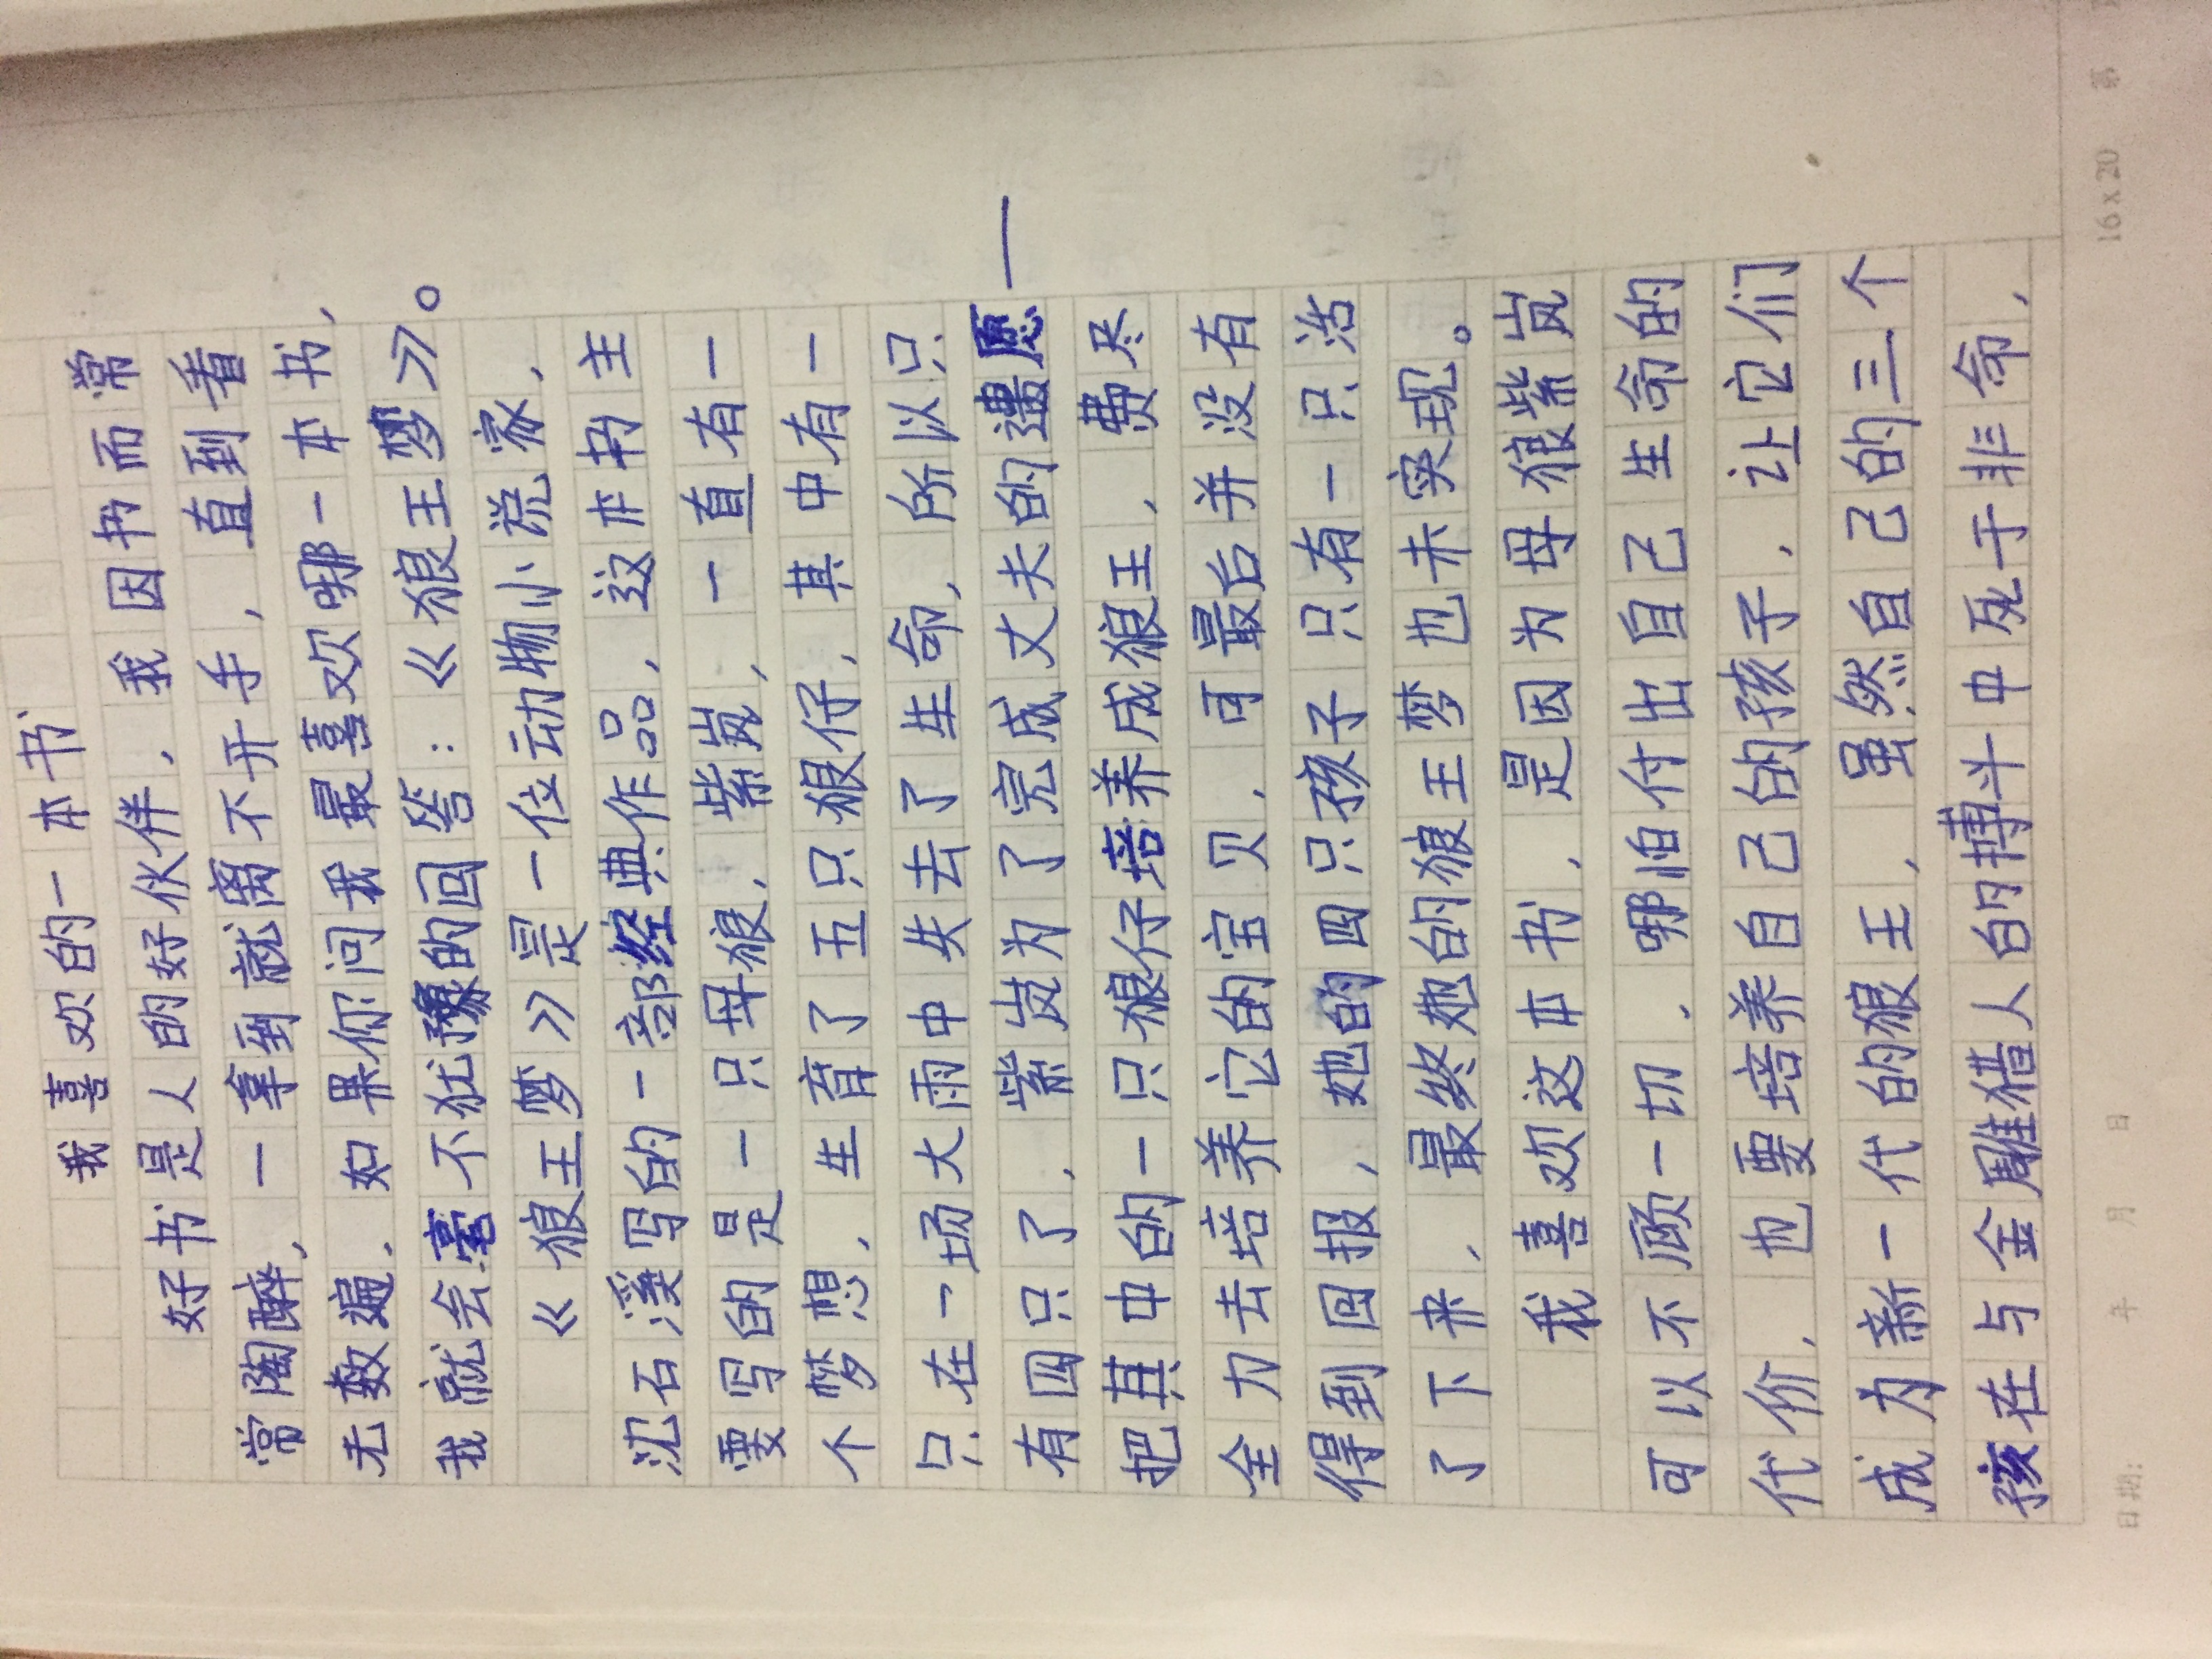 我喜欢的一本书
好书是人的好伙伴，我因书而常
常陶醉，一拿到就离不开手，直到看
无数遍。如果你问我最喜欢哪一本书，
我就会毫不犹豫的回答：《狼王梦》。
《狼王梦》是一位动物小说家，
沈石溪写的一部经典作品，这本书主
要写的是一只母狼，紫岚，一直有一
个梦想，生育了五只狼仔，其中有一
只在一场大雨中失去了生命，所以只
有四只了，紫岚为了完成丈夫的遗愿——
把其中的一只狼仔培养成狼王，费尽
全力去培养它的宝贝，可最后并没有
得到回报，她的四只孩子只有一只活
了下来，最终她的狼王梦也未实现。
我喜欢这本书，是因为母狼紫岚
可以不顾一切，哪怕付出自己生命的
代价，也要培养自己的孩子，让它们
成为新一代的狼王，虽然自己的三个
孩在与金雕猎人的搏斗中死于非命，
日期： 年 月 日 16x20 第